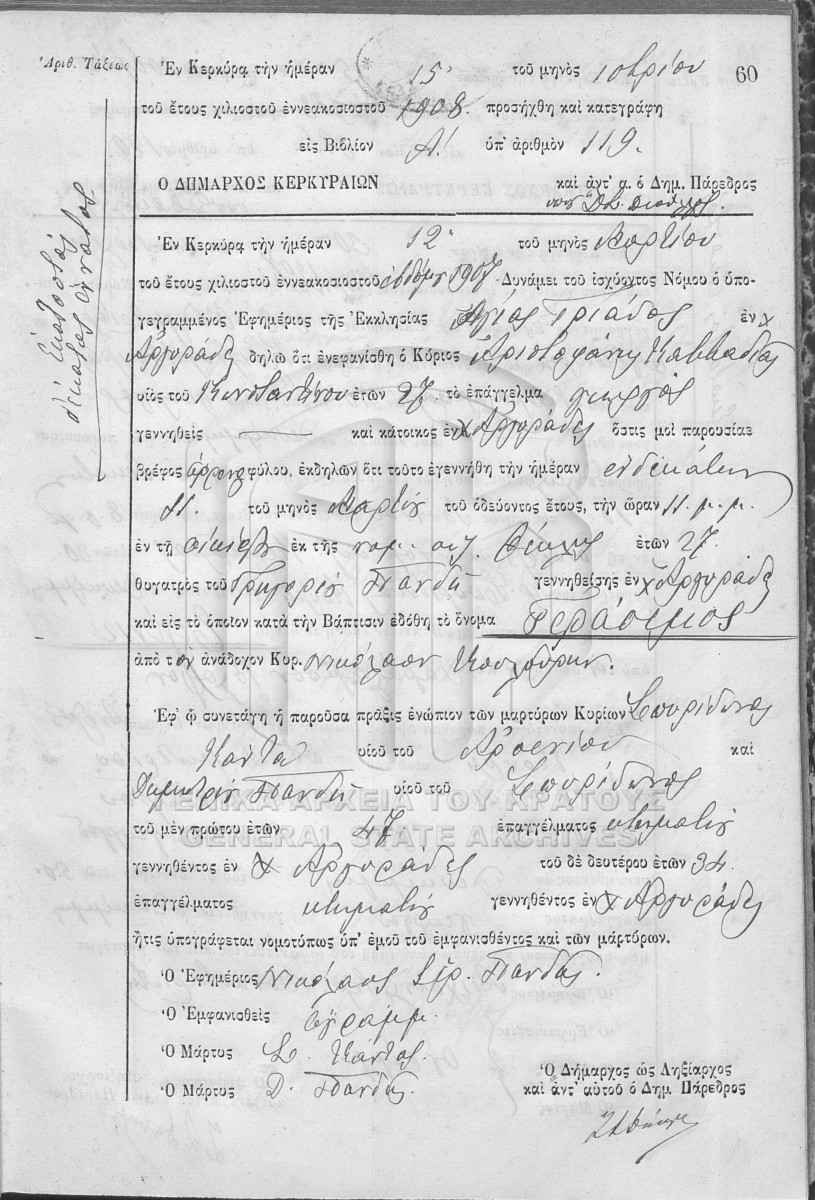 Ἀριθ. Τάξεως
60
Ἐν Κερκύρᾳ τὴν ἡμέραν 15 τοῦ μηνὸς
τοῦ ἔτους χιλιοστοῦ ἐννεακοσιοστοῦ 1908 προσήχθη καὶ κατεγράφη
εἰς Βιβλίον Α! ὑπ' ἀριθμὸν 119.
Ο ΔΗΜΑΡΧΟΣ ΚΕΡΚΥΡΑΙΩΝ καὶ ἀντ' α. ὁ Δημ. Πάρεδρος
ἑκατοστὸς
δέκατος ἔνατος
Ἐν Κερκύρᾳ τὴν ἡμέραν 12 τοῦ μηνὸς Μαρτίου
τοῦ ἔτους χιλιοστοῦ ἐννεακοσιοστοῦ ἑβδόμου 1907 Δυνάμει τοῦ ἰσχύοντος Νόμου ὁ ὑπο-
γεγραμμένος Ἐφημέριος τῆς Ἐκκλησίας Ἁγίας Τριάδος ἐν χ
Ἀργυράδες δηλῶ ὅτι ἐνεφανίσθη ὁ Κύριος Ἀριστοφάνης Καββαδίας
υἱὸς τοῦ Κωνσταντίνου ἐτῶν 27. τὸ ἐπάγγελμα γεωργὸς
γεννηθεὶς — καὶ κάτοικος ἐν χ Ἀργυράδες ὅστις μοὶ παρουσίασε
βρέφος ἄρρενος φύλου, ἐκδηλῶν ὅτι τοῦτο ἐγεννήθη τὴν ἡμέραν ἑνδεκάτην
11. τοῦ μηνὸς Μαρτίου τοῦ ὁδεύοντος ἔτους, τὴν ὥραν 11. μ. μ.
ἐν τῇ οἰκίᾳ ἐκ τῆς νομ. συζ. ἐτῶν 27.
θυγατρὸς τοῦ Γρηγορίου Πανδῆ γεννηθείσης ἐν χ Ἀργυράδες
καὶ εἰς τὸ ὁποῖον κατὰ τὴν Βάπτισιν ἐδόθη τὸ ὄνομα Γεράσιμος
ἀπὸ τὸν ἀνάδοχον Κυρ. Νικόλαον
Ἐφ' ᾧ συνετάγη ἡ παροῦσα πρᾶξις ἐνώπιον τῶν μαρτύρων Κυρίων Σπυρίδωνος
Κάντα υἱοῦ τοῦ Ἀρσενίου καὶ
Δημητρίου Πανδῆ υἱοῦ τοῦ Σπυρίδωνος
ΓΕΝΙΚΑ ΑΡΧΕΙΑ ΤΟΥ ΚΡΑΤΟΥΣ
GENERAL STATE ARCHIVES
τοῦ μὲν πρώτου ἐτῶν 47 ἐπαγγέλματος κτηματίου
γεννηθέντος ἐν χ Ἀργυράδες τοῦ δὲ δευτέρου ἐτῶν 34.
ἐπαγγέλματος κτηματίου γεννηθέντος ἐν χ Ἀργυράδες
ἥτις ὑπογράφεται νομοτύπως ὑπ' ἐμοῦ τοῦ ἐμφανισθέντος καὶ τῶν μαρτύρων.
Ὁ Ἐφημέριος Νικόλαος Πανδῆς.
Ὁ Ἐμφανισθεὶς ἀγράμμ.
Ὁ Μάρτυς Σ. Κάντας.
Ὁ Μάρτυς Δ. Πανδῆς.
Ὁ Δήμαρχος ὡς Ληξίαρχος
καὶ ἀντ' αὐτοῦ ὁ Δημ Πάρεδρος